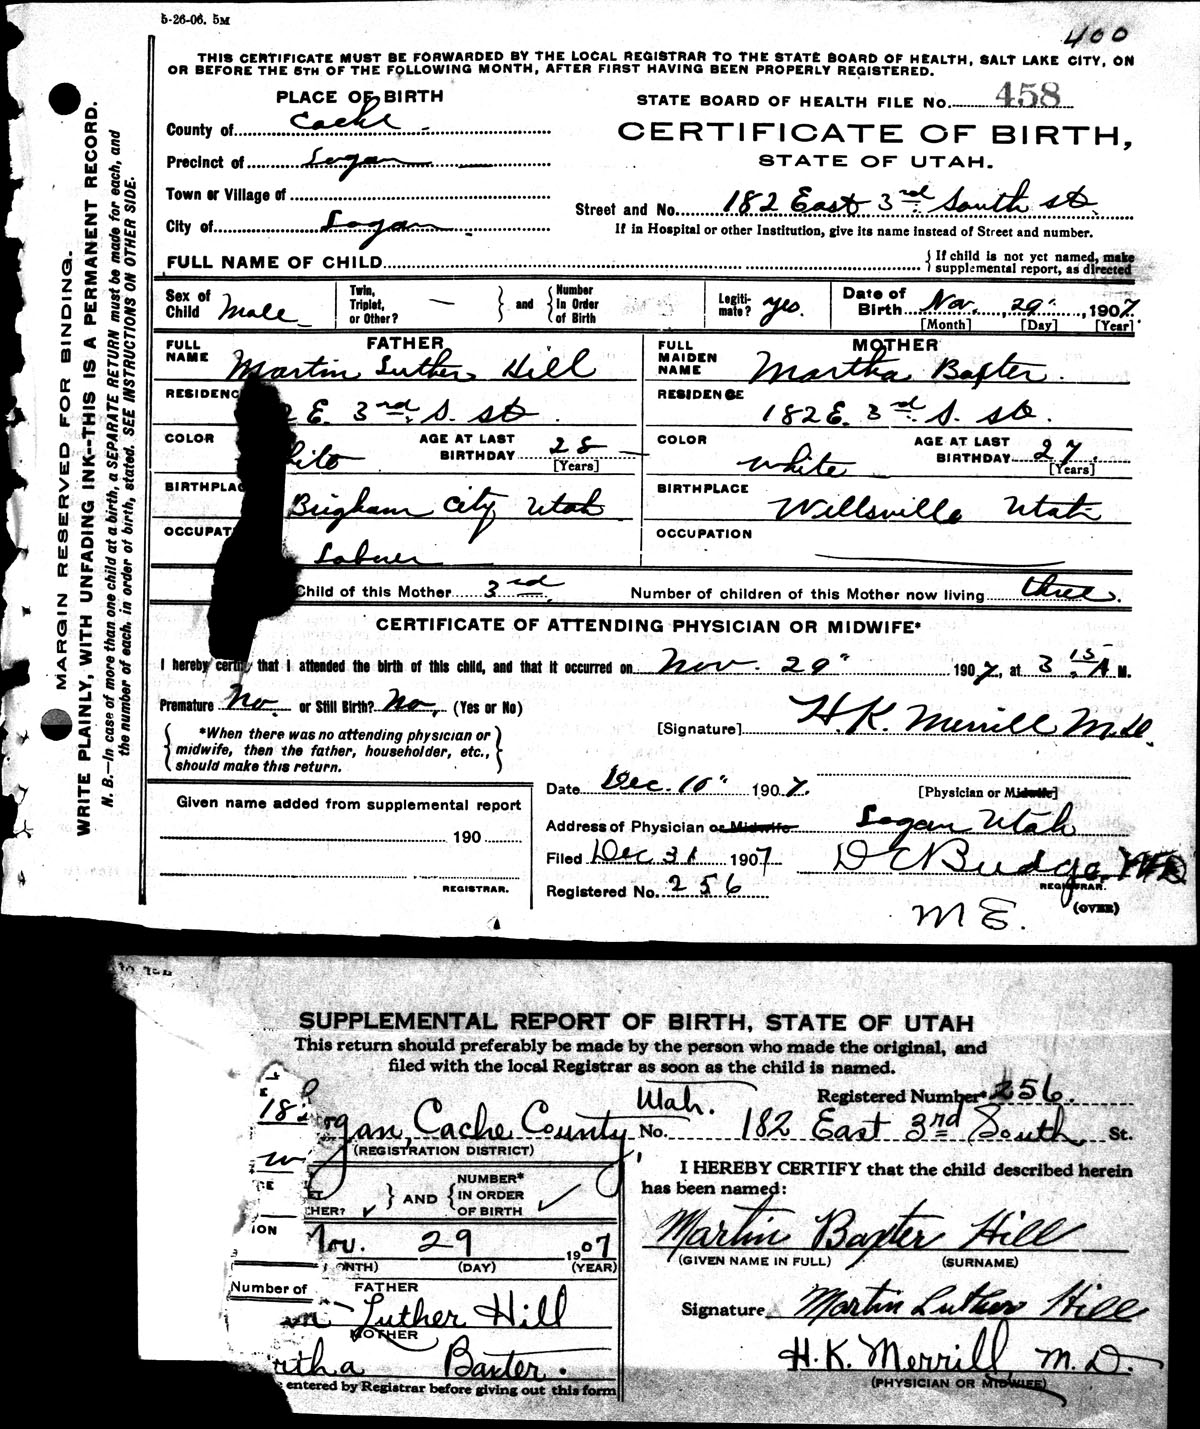 5-26-06. 5M
400
THIS CERTIFICATE MUST BE FORWARDED BY THE LOCAL REGISTRAR TO THE STATE BOARD OF HEALTH, SALT LAKE CITY, ON
OR BEFORE THE 5TH OF THE FOLLOWING MONTH, AFTER FIRST HAVING BEEN PROPERLY REGISTERED.
MARGIN RESERVED FOR BINDING.
WRITE PLAINLY, WITH UNFADING INK--THIS IS A PERMANENT RECORD.
N. B.—In case of more than one child at a birth, a SEPARATE RETURN must be made for each, and
the number of each, in order of birth, stated. SEE INSTRUCTIONS ON OTHER SIDE.
PLACE OF BIRTH
County of Cache
Precinct of Logan
Town or Village of
City of Logan
STATE BOARD OF HEALTH FILE No. 458
CERTIFICATE OF BIRTH,
STATE OF UTAH.
Street and No. 182 East 3rd South st.
If in Hospital or other Institution, give its name instead of Street and number.
FULL NAME OF CHILD
If child is not yet named, make
supplemental report, as directed
Sex of Child Male
Twin, Triplet, or Other? —
and
Number In Order of Birth
Legiti-mate? yes.
Date of Birth Nov. 29", 1907.
[Month] [Day] [Year]
FATHER
FULL NAME Martin Luther Hill
RESIDENC 2 E. 3rd S. st.
COLOR hite
AGE AT LAST BIRTHDAY 28
[Years]
BIRTHPLAC Brigham City Utah
OCCUPAT Laborer
MOTHER
FULL MAIDEN NAME Martha Baxter.
RESIDENCE 182 E. 3rd S. st.
COLOR white
AGE AT LAST BIRTHDAY 27
[Years]
BIRTHPLACE Wellsville Utah
OCCUPATION
Child of this Mother 3rd
Number of children of this Mother now living three.
CERTIFICATE OF ATTENDING PHYSICIAN OR MIDWIFE*
I hereby certify that I attended the birth of this child, and that it occurred on Nov. 29" 1907, at 3 15 A M.
Premature No. or Still Birth? No, (Yes or No)
*When there was no attending physician or
midwife, then the father, householder, etc.,
should make this return.
[Signature] H. K. Merrill M.D.
Date Dec. 10" 1907.
[Physician or Midwife]
Given name added from supplemental report
190
REGISTRAR.
Address of Physician or Midwife Logan Utah
Filed Dec 31 1907
D C Budge
REGISTRAR.
Registered No. 256
M E.
(OVER)
SUPPLEMENTAL REPORT OF BIRTH, STATE OF UTAH
This return should preferably be made by the person who made the original, and
filed with the local Registrar as soon as the child is named.
Registered Number 256.
18
ogan, Cache County, Utah.
(REGISTRATION DISTRICT)
No. 182 East 3rd South St.
CE
HER?
AND
NUMBER* IN ORDER OF BIRTH
ION
Nov. 29 1907
ONTH) (DAY) (YEAR)
Number of
FATHER
in Luther Hill
MOTHER
rtha Baxter.
entered by Registrar before giving out this form
I HEREBY CERTIFY that the child described herein
has been named:
Martin Baxter Hill
(GIVEN NAME IN FULL) (SURNAME)
Signature Martin Luther Hill
H. K. Merrill M. D.
(PHYSICIAN OR MIDWIFE)